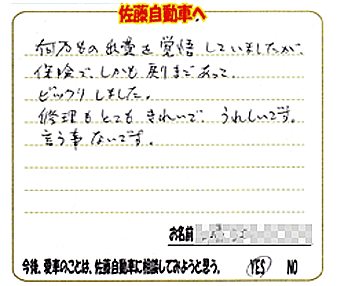 佐藤自動車へ
何万もの出費を覚悟していましたが、
保険で、しかも戻りまであって、
ビックリしました。
修理もとてもきれいで、うれしいです。
言う事ないです。
お名前
今後、愛車のことは、佐藤自動車に相談してみようと思う。 YES NO